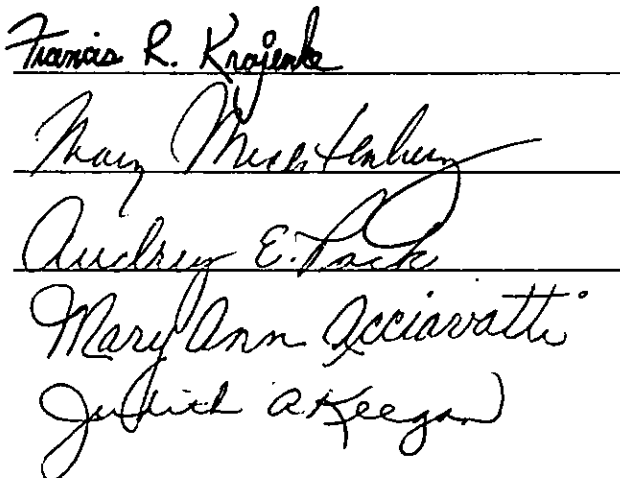 Francis R. Krajenke
Mary
Audrey E. Pack
Mary Ann Acciavatti
Judith A Keegan